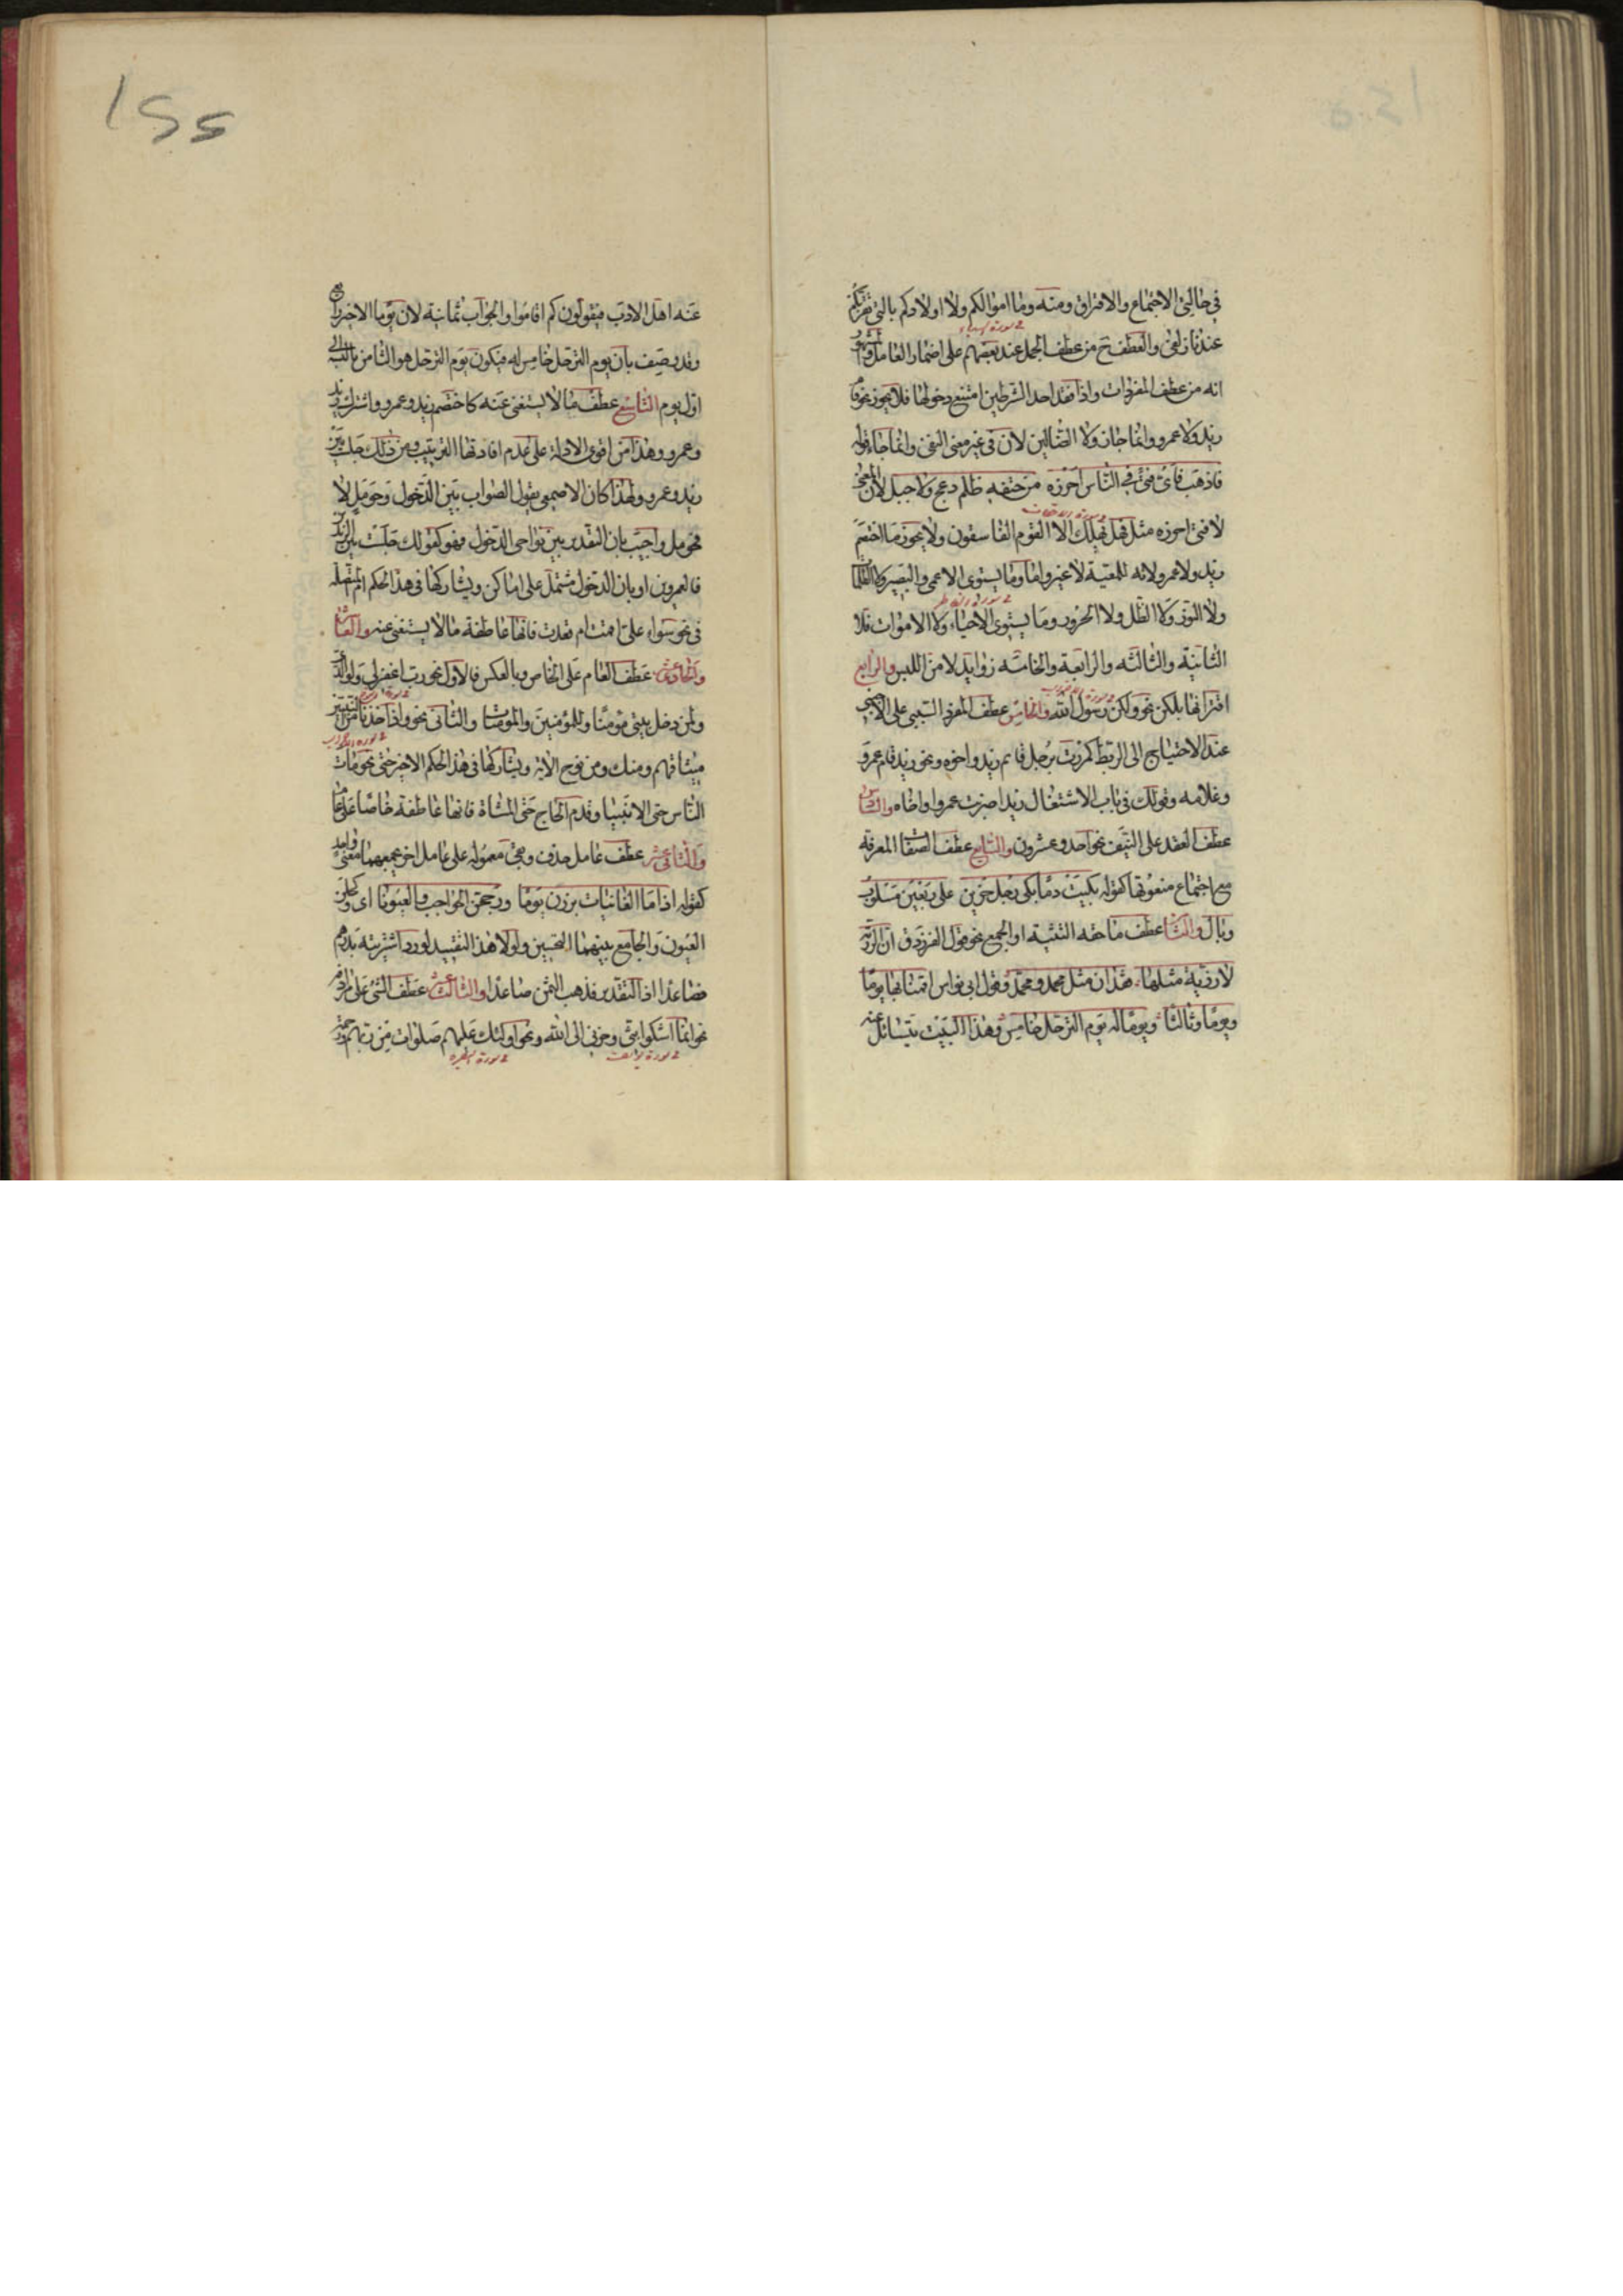 في حالتي الاجتماع والافتراق ومنه وما اموالكم ولا اولادكم بالتي تقربكم
عندنا زلفى والعطف ح من عطف الجمل عند بعضهم على اضمار العامل والمشهور
انه من عطف المفردات واذا فقد احد الشرطين امتنع دخولها فلا يجوز نحو قام
زيد ولا عمرو وانما جاز ولا الضالين لان في غير معنى النفي وانما جاء قوله
فاذهب فاى فتى في الناس احرزه من حتفه ظلم دعج ولا جبل لان المعنى
لا فتى احرزه مثل فهل يهلك الا القوم الفاسقون ولا يجوز ما اختصم
زيد ولا عمرو لانه للمعية لا غير واما وما يستوي الاعمى والبصير ولا الظلمات
ولا النور ولا الظل ولا الحرور وما يستوي الاحياء ولا الاموات فلا
الثانية والثالثه والرابعة والخامسه زوايد لامن اللبس والرابع
اقترانها بلكن نحو ولكن رسول الله والخامس عطف المفرد السببي على الاجنبي
عند الاحتياج الى الربط كمررت برجل قايم زيد واخوه ونحو زيد قام عمرو
وغلامه وقولك في باب الاشتغال زيدا ضربت عمروا واخاه والسادس
عطف العقد على النيف نحو احد وعشرون والسابع عطف الصفات المفرقة
مع اجتماع منعوتها كقوله بكيت وما بكى رجل حزين على ربعين مسلوب
وبال والثامن عطف ما حقه التثنية او الجمع نحو قول الفرزدق ان الرزية
لا رزية مثلها فقدان مثل محمد ومحمد وقول ابي نواس اقمنا بها يوما
ويوما وثالثا ويوما له يوم الترحل خامس وهذا البيت يتسائل عنه
عنه اهل الادب فيقولون كم اقاموا والجواب ثمانية لان يوما الاخير رابع
وقد وصف بان يوم الترحل خامس له فيكون يوم الترحل هو الثامن بالنسبة الى
اول يوم التاسع عطف ما لا يستغنى عنه كاختصم زيد وعمرو واشترك زيد
وعمرو وهذا من اقوى الادلة على عدم افادتها الترتيب ومن ذلك جلست بين
زيد وعمرو ولهذا كان الاصمعي يقول الصواب بين الدخول وحومل لا
فحومل واجيب بان التقدير بين نواحي الدخول فهو كقولك جلست بين الزيدين
فالعمرين او بان الدخول مشتمل على اماكن ويشاركها في هذا الحكم ام المتصلة
في نحو سواء علي اقمت ام قعدت فانها عاطفة ما لا يستغنى عنه والعاشر
والحادي عشر عطف العام على الخاص وبالعكس فالاول نحو رب اغفر لي ولوالدي
ولمن دخل بيتي مؤمنا وللمؤمنين والمومنات والثاني نحو واذ اخذنا من النبيين
ميثاقهم ومنك ومن نوح الاية ويشاركها في هذا الحكم الاخير حتى نحو مات
الناس حتى الانبيا وقدم الحاج حتى المشاة فانها عاطفة خاصا على عام
والثاني عشر عطف عامل حذف وبقي معموله على عامل اخر يجمعهما معنى واحد
كقوله اذا ما الغانيات برزن يوما وزججن الحواجب والعيونا اى وكحلن
العيون والجامع بينهما التحسين ولولا هذا التقييد لورد اشتريته بدرهم
فصاعدا اذ التقدير فذهب الثمن صاعدا والثالث عشر عطف الشئ على مرادفه
نحو انما اشكوا بثي وحزني الى الله ونحو اولئك عليهم صلوات من ربهم ورحمة